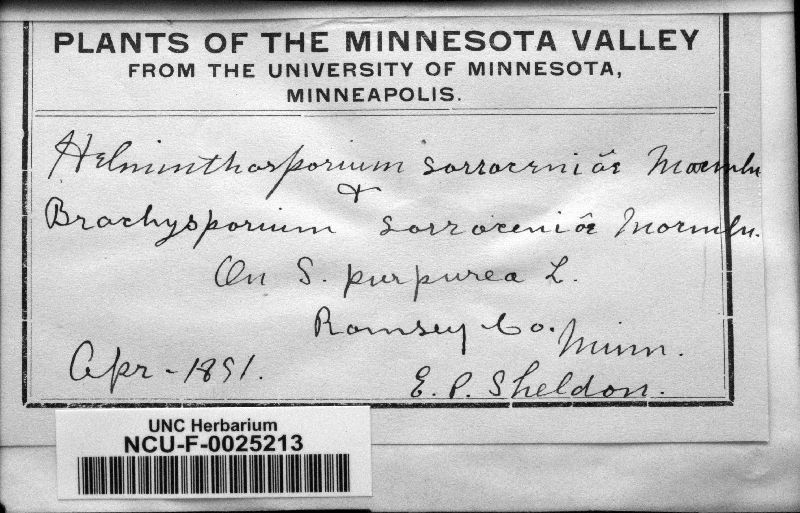 PLANTS OF THE MINNESOTA VALLEY
FROM THE UNIVERSITY OF MINNESOTA,
MINNEAPOLIS.
Helminthosporium sarraceniæ
&
Brachysporium sarraceniæ
On S. purpurea L.
Ramsey Co. Minn.
Apr - 1891.
E. P. Sheldon.
UNC Herbarium
NCU-F-0025213